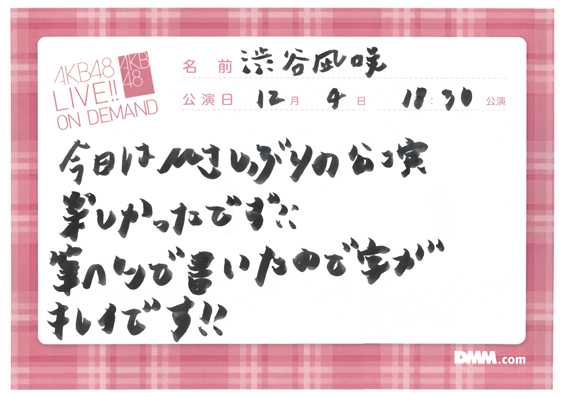 AKB48
LIVE!!
ON DEMAND
AKB
48
名 前 渋谷凪咲
公演日 12月 4日 18:30 公演
今日はひさしぶりの公演
楽しかったです!!
筆ペンで書いたので字が
キレイです!!
DMM.com